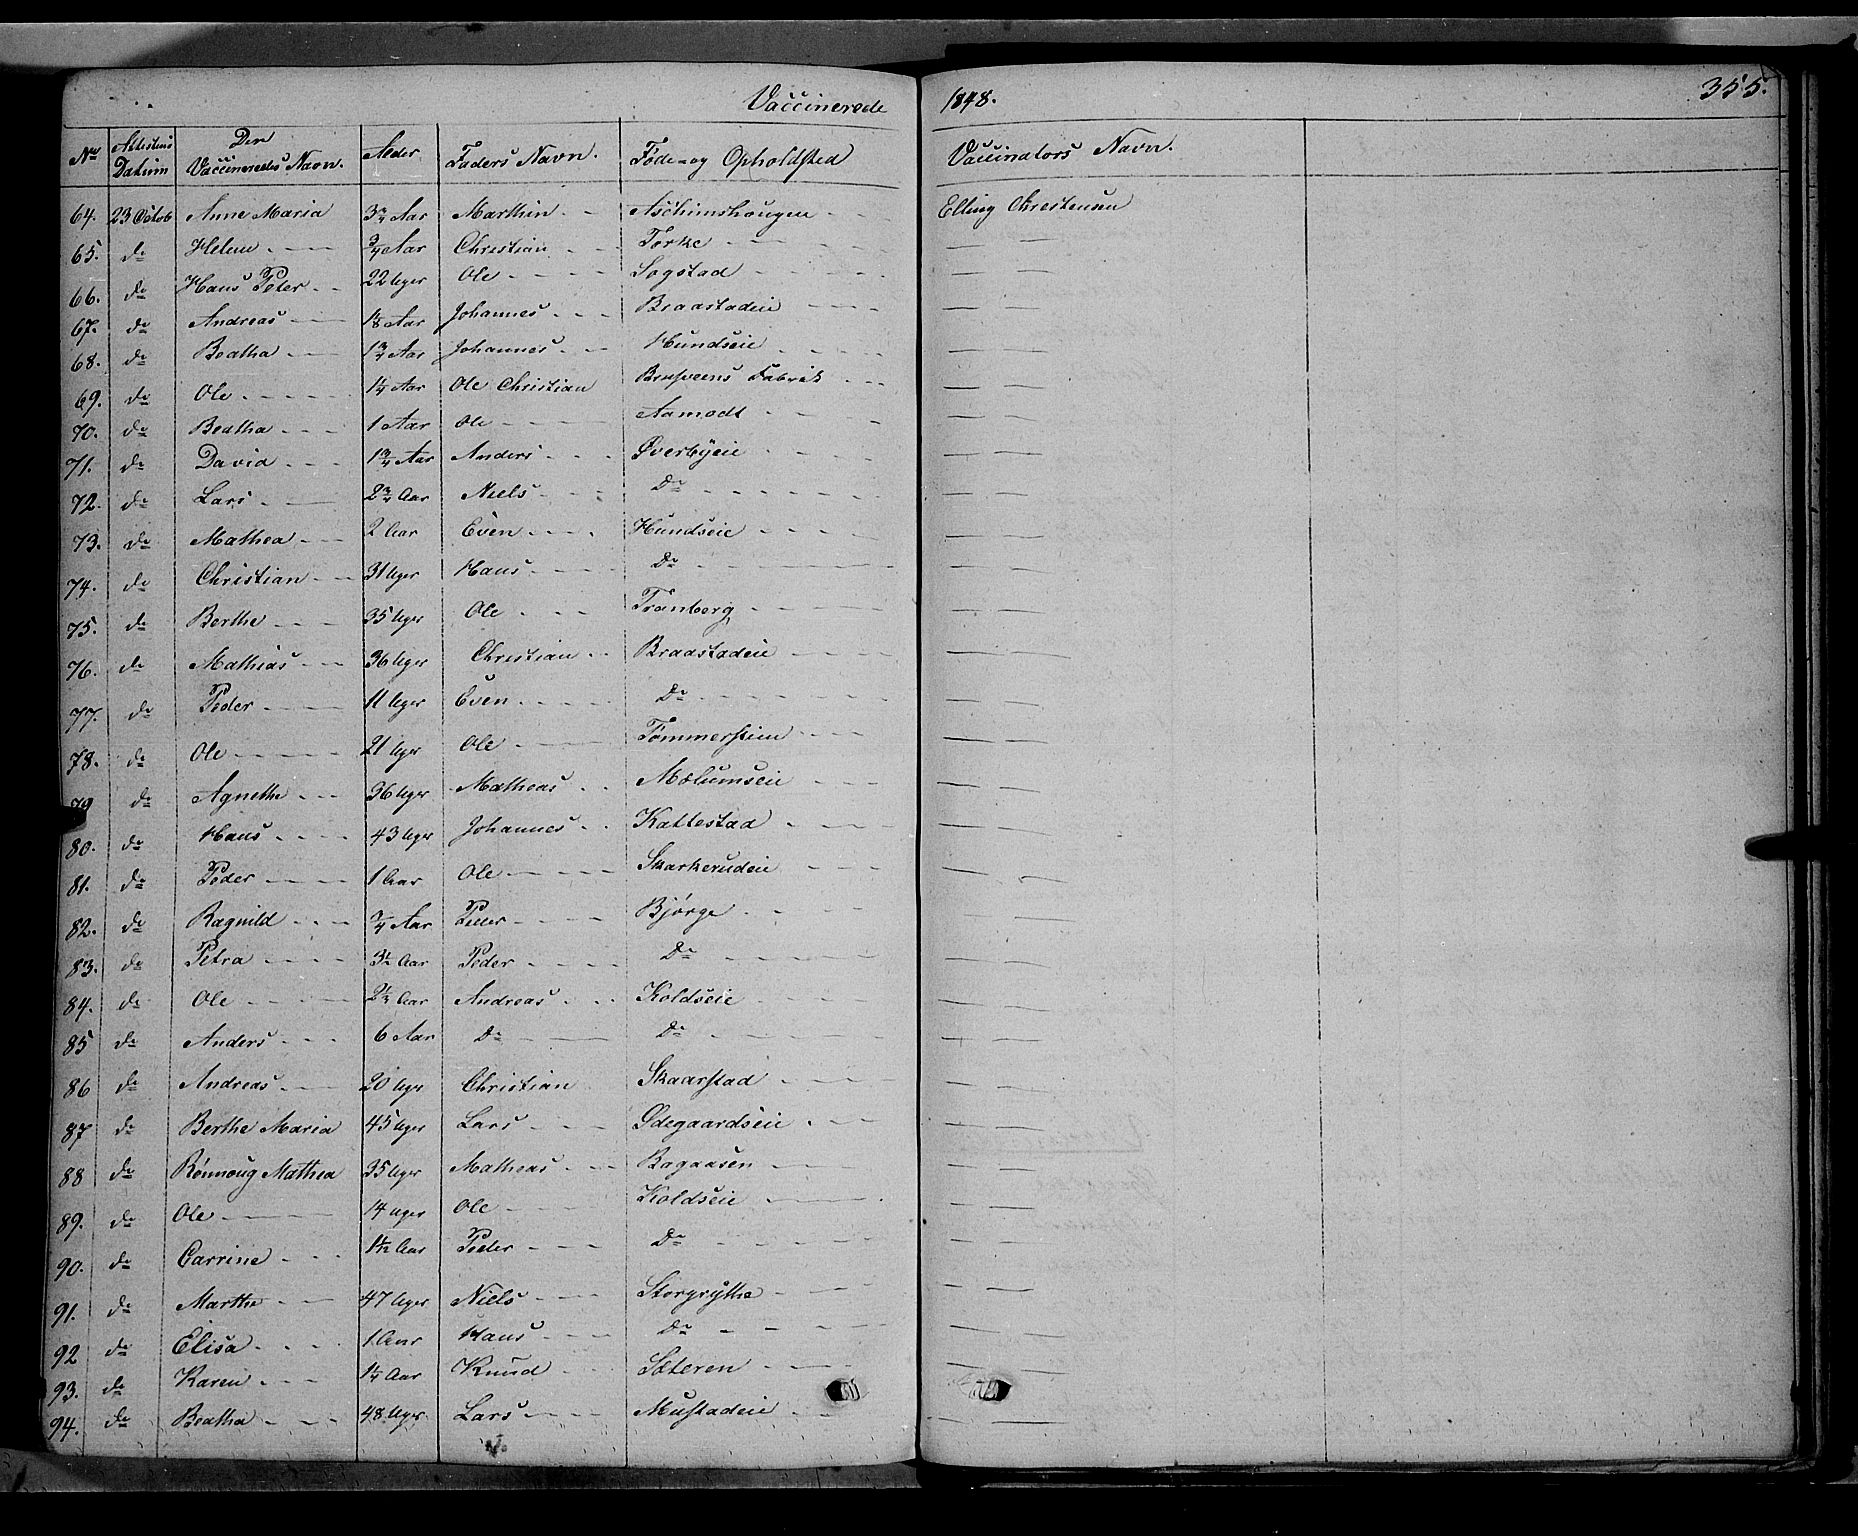 Vaccinerede 1848. 355.
No Attestens Datum Den Vaccineredes Navn. Alder Faders Navn. Føde- og Opholdsted Vaccinators Navn.
64. 23 Octob Anne Maria 3 3/4 Aar Marthin Aschimshougen Elling Christensen
65. do Helene 3/4 Aar Christian Torke
66. do Hans Peter 22 Uger Ole Sogstad
67. do Andreas 1 1/8 Aar Johannes Braastadeie
68. do Beatha 1 3/4 Aar Johannes Hundseie
69. do Ole 1 1/4 Aar Ole Christian Brusveens Fabrik
70. do Beatha 1 Aar Ole Aamodt
71. do David 1 3/4 Aar Anders Øverbyeie
72. do Lars 2 3/4 Aar Niels Do
73. do Mathea 2 Aar Even Hundseie
74. do Christian 31 Uger Hans Do
75. do Berthe 35 Uger Ole Tranberg
76. do Mathias 36 Uger Christian Braastadeie
77. do Peder 11 Uger Even Do
78. do Ole 21 Uger Ole Tømmerstien
79 do Agnethe 36 Uger Matheas Mælumseie
80. do Hans 43 Uger Johannes Kattestad
81. do Peder 1 Aar Ole Skarkerudeie
82. do Ragnild 3/4 Aar Peter Bjørge
83. do Petra 3 1/2 Aar Peder Do
84. do Ole 2 1/2 Aar Andreas Koldseie
85 do Anders 6 Aar Do Do
86 do Andreas 20 Uger Christian Skaarstad
87 do Berthe Maria 45 Uger Lars Ødegaardseie
88 do Rønnoug Mathea 35 Uger Matheas Bagaasen
89. do Ole 14 Uger Ole Koldseie
90. do Carrine 1 1/12 Aar Peder Do
91. do Marthe 47 Uger Niels Storgrythe
92 do Elisa 1 Aar Hans Do
93. do Karen 1 1/4 Aar Knud Sæteren
94. do Beatha 48 Uger Lars Mustadeie